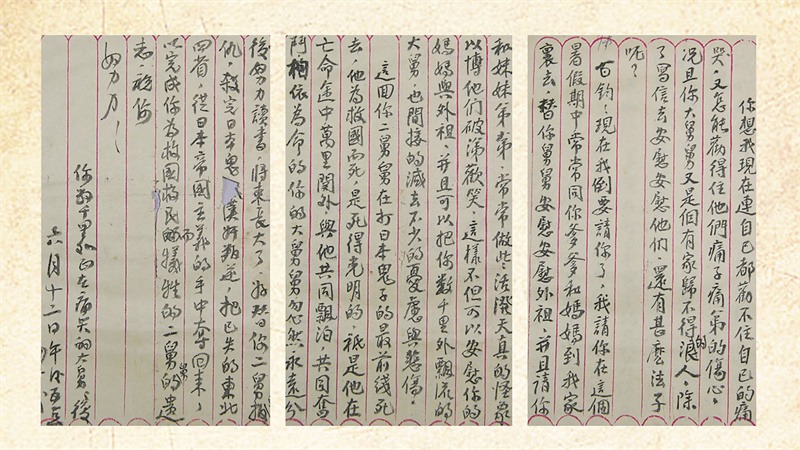 你想我現在連自己都勸不住自己的痛
哭,又怎能勸得住他們痛子痛弟的傷心。
況且你大舅舅又是個有家歸不得的浪人,除
了寫信去安慰安慰他們,還有甚麽法子
呢?
古鈞:現在我倒要請你了,我請你在這個
暑假期中常常同你爹爹和媽媽到我家
裏去,替你舅舅安慰安慰外祖,并且請你
和妹妹弟弟,常常做些活潑天真的怪象
以博他們破涕歡笑,這樣不但可以安慰你的
媽媽與外祖,并且可以把你數千里外飄流的
大舅,也間接的減去不少的憂慮與悲傷。
這回你二舅舅在打日本鬼子的最前綫死
去,他為救國而死,是死得光明的,祇是他在
亡命途中萬里關外,與他共同飄泊共同奮
鬥相依為命的你的大舅舅勿然永遠分
後努力讀書,將來長大了,好你二舅
仇,殺完日本鬼漢奸叛逆,把已失的東北
四省,從日本帝國主義的手中奪回來,
以完成你為救國救民而犧牲的二舅舅的遺
志,祝你
努力!
你數千里外正在痛哭的大舅
六月十二日午後五